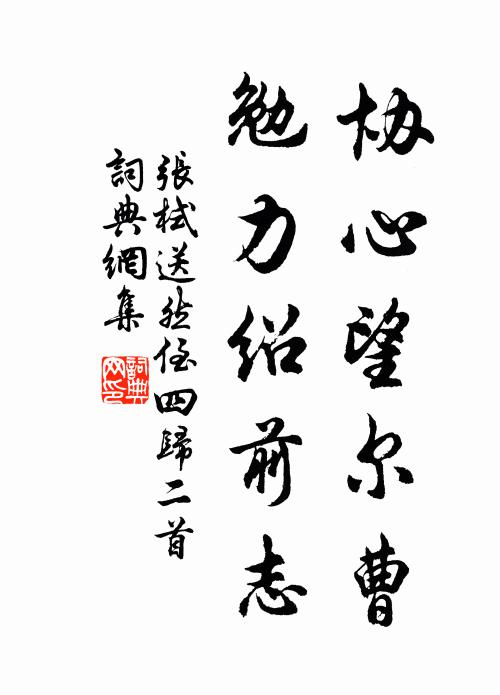 协心望尔曹
勉力绍前志
張栻送然侄四歸二首
詞典網集
詞典網印